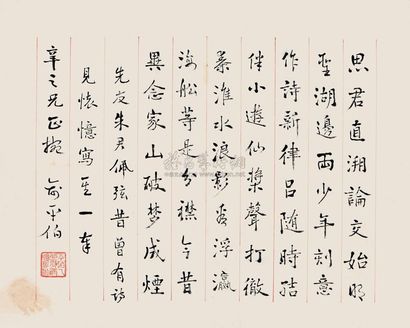 思君直溯論交始明
聖湖邊兩少年刻意
作詩新律呂随時結
伴小遊仙槳聲打徹
秦淮水浪影看浮瀛
海船等是分襟今昔
異念家山破夢成煙
先友朱君佩弦昔曾有詩
見懷憶寫其一奉
辛之兄正擬
俞平伯